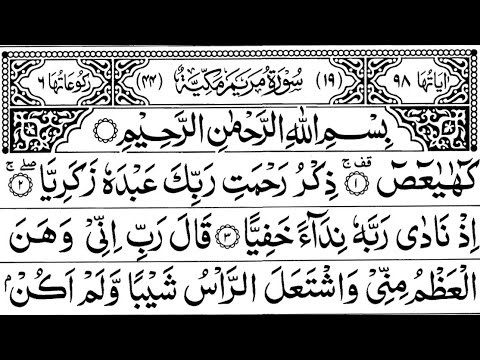 اٰيَاتُهَا ٩٨ (١٩) سُوْرَةُ مَرْيَمَ مَكِّيَّةٌ (٤٤) رُكُوْعَاتُهَا ٦
بِسْمِ اللّٰهِ الرَّحْمٰنِ الرَّحِيْمِ
كٓهٰيٰعٓصٓ ۚ قف ﴿١﴾ ذِكْرُ رَحْمَتِ رَبِّكَ عَبْدَهٗ زَكَرِيَّا ۖ ۚ ﴿٢﴾
اِذْ نَادٰى رَبَّهٗ نِدَآءً خَفِيًّا ﴿٣﴾ قَالَ رَبِّ اِنِّىْ وَهَنَ
الْعَظْمُ مِنِّىْ وَاشْتَعَلَ الرَّاْسُ شَيْبًا وَّلَمْ اَكُنْۢ